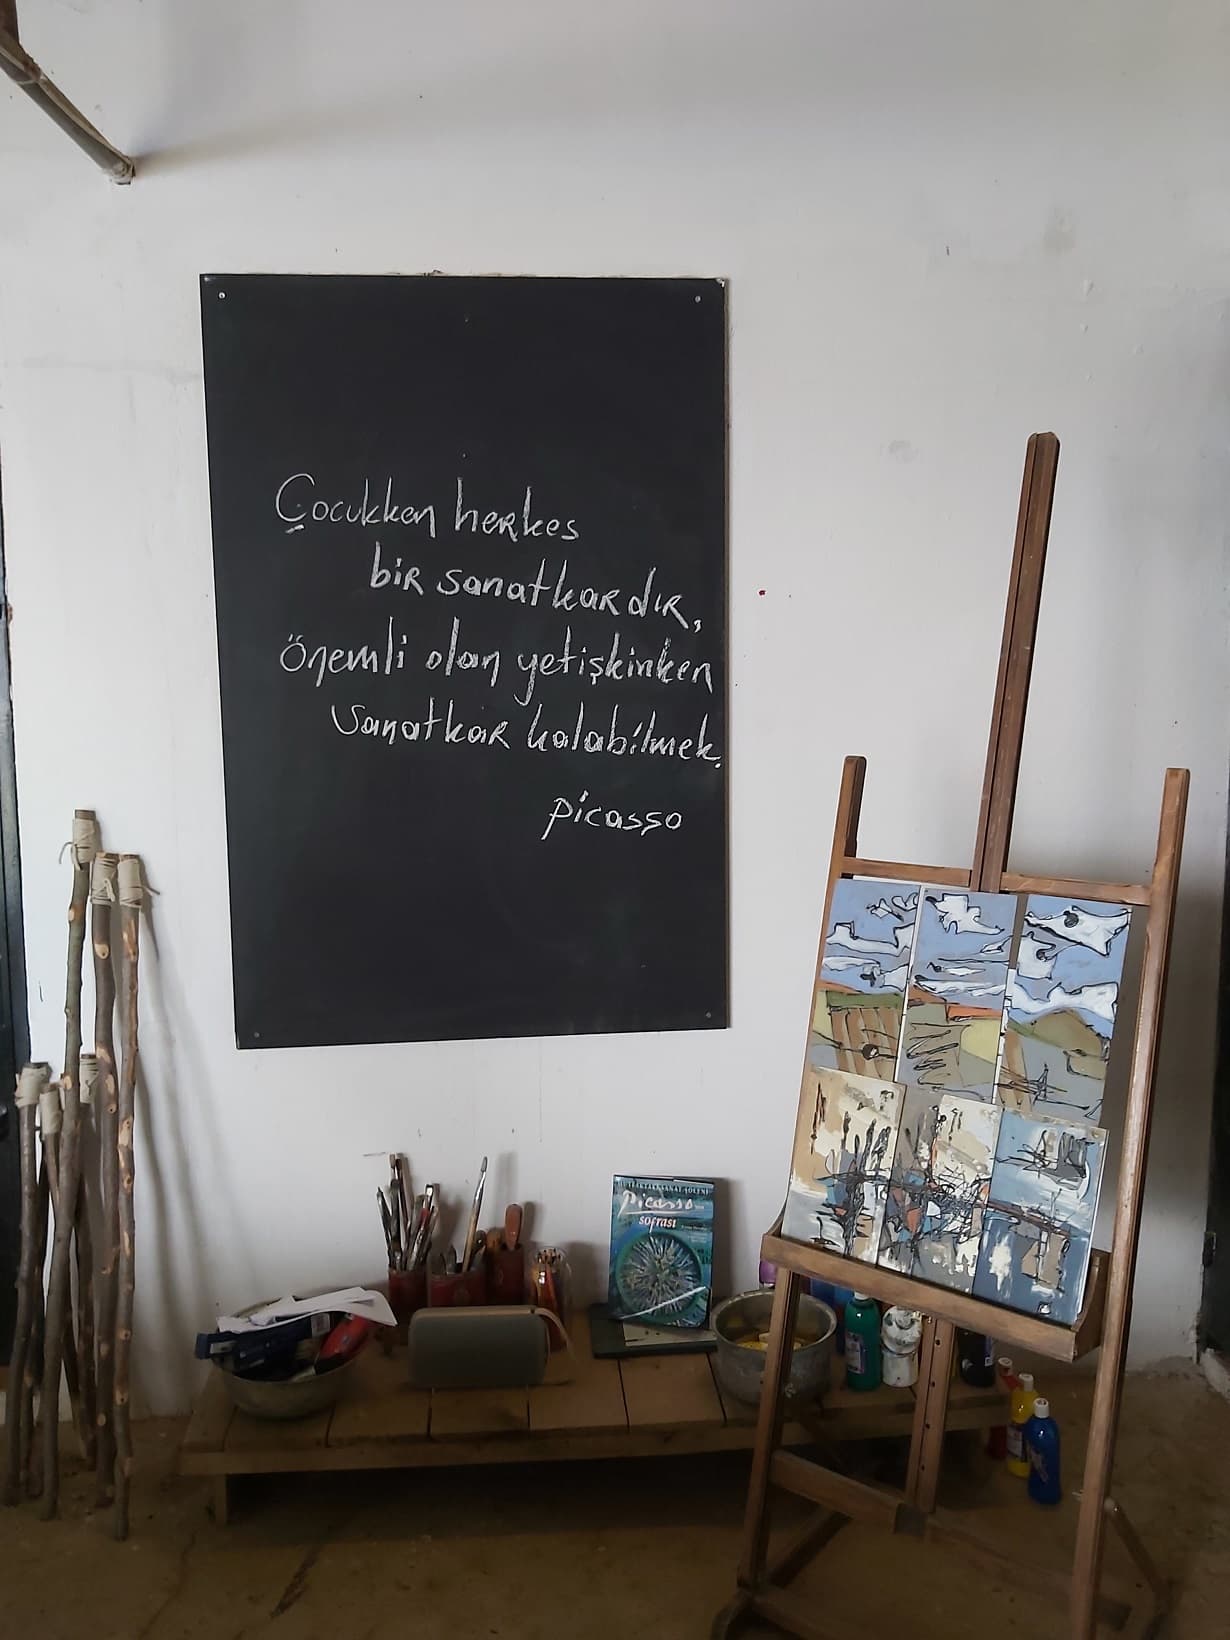 Çocukken herkes
bir sanatkardır,
önemli olan yetişkinken
sanatkar kalabilmek.
picasso
Picasso
sofrası